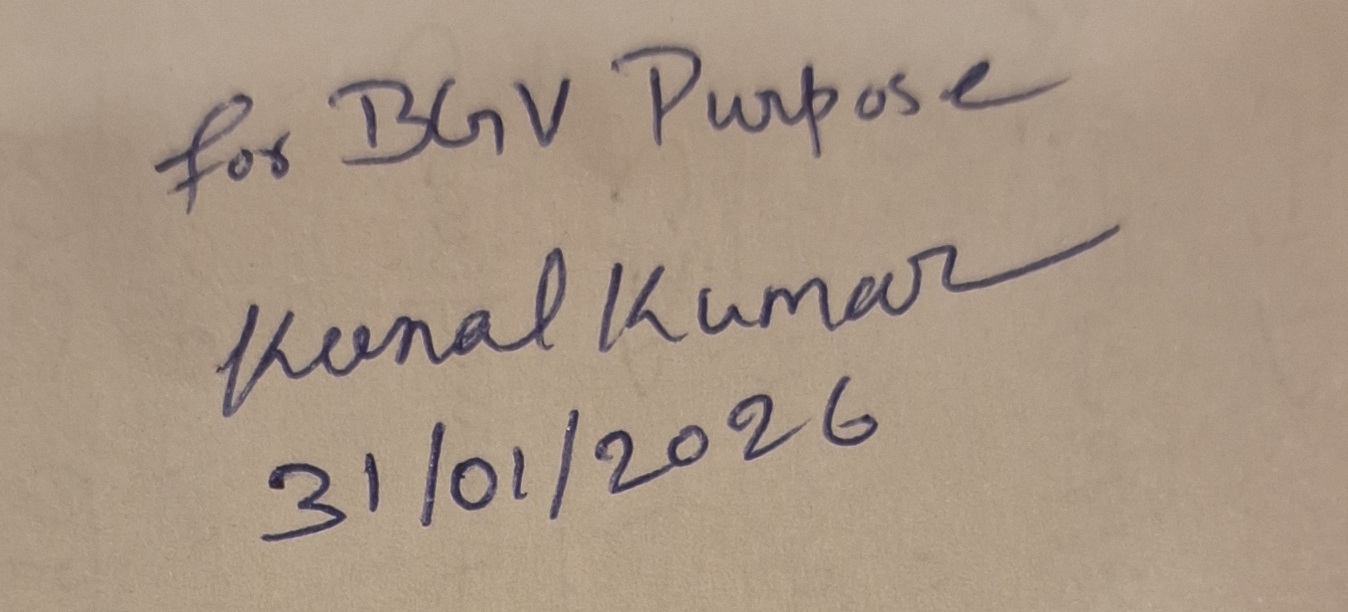 For BGV Purpose
Kunal Kumar
31/01/2026